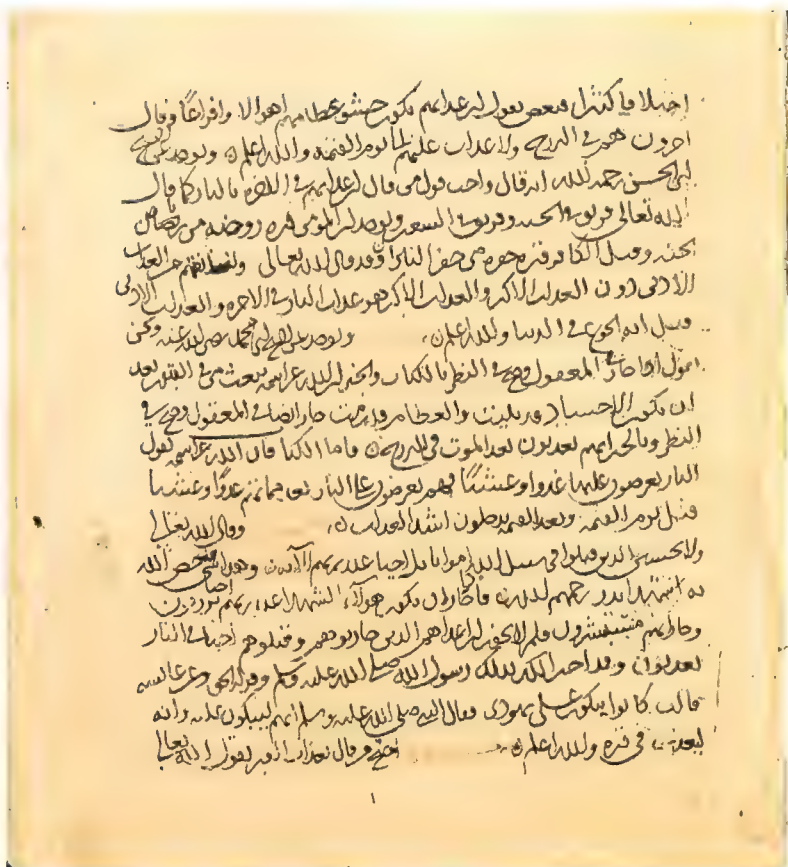 اختلافا كثيرا فبعض يقول ان عذابهم يكون حشو عظامهم اهوالا وافزاعا وقال
اخرون هو في الروح ولا عذاب عليهم الى يوم القيمة والله اعلم ويوجد عن
ابي الحسن رحمه الله انه قال واحب قول من قال ان عذابهم في الاخرة بالنار كما قال
الله تعالى فريق في الجنة وفريق في السعير ويوجد ان المومن قبره روضة من رياض
الجنة وقيل الكافر قبره حفرة من حفر النار وقد قال الله تعالى ولنذيقنهم من العذاب
الادنى دون العذاب الاكبر والعذاب الاكبر هو عذاب النار في الاخرة والعذاب الادنى
قيل انه الجوع في الدنيا والله اعلم ويوجد عن ابي محمد رضي الله عنه ونحن
نقول انه جائز في المعقول وصح في النظر بالكتاب والخبر ان الله عز اسمه يبعث من في القبور بعد
ان تكون الاجساد قد بليت والعظام قد رمت جاز ايضا في المعقول وصح في
النظر وبالخبر انهم يعذبون بعد الموت في فاما الكتاب قال الله عز اسمه يقول
النار يعرضون عليها غدوا وعشيا فهم يعرضون على النار غدوا وعشيا
قبل يوم القيمة وبعد القيمة يدخلون اشد العذاب وقال الله تعالى
ولا تحسبن الذين قتلوا في سبيل الله امواتا بل احيا عند ربهم الاية وهذا شي خص الله
به شهدا بدر رحمهم الله فاذا جاز ان يكون هولاء الشهدا عند ربهم احيا يرزقون
وجاز انهم مستبشرون فلم لا يجوز ان اعداهم الذين حاربوهم وقتلوهم احيا في النار
يعذبون وقد احب الله بذلك رسول الله صلى الله عليه وسلم وقوله الحق وعن عائشة
قالت كانوا يبكون على يهودي فقال النبي صلى الله عليه وسلم انهم ليبكون عليه وانه
ليعذب في قبره والله اعلم احتج من قال بعذاب القبر بقول الله تعالى